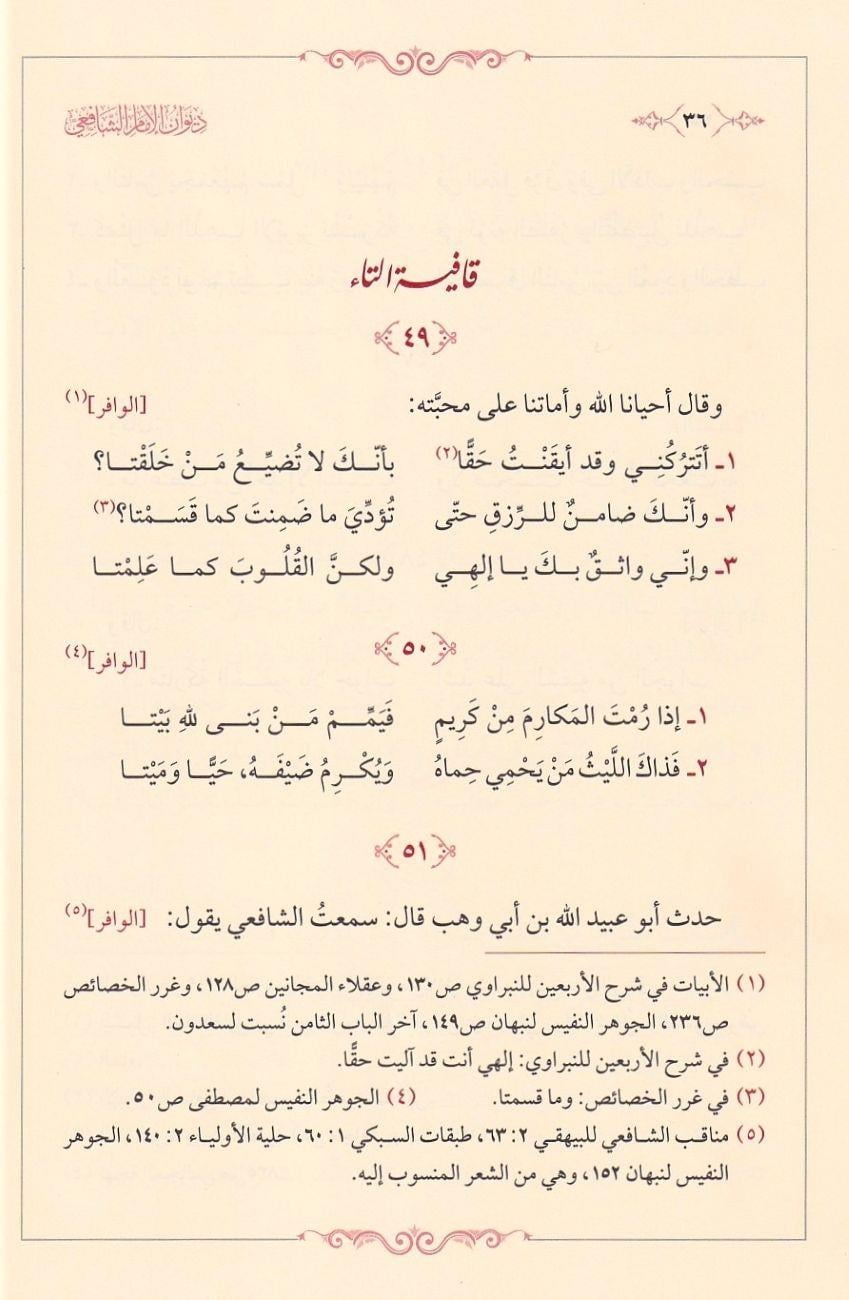 ٣٦
ديوان الإمام الشافعي
قافية التاء
٤٩
وقال أحيانا الله وأماتنا على محبَّته: [الوافر](١)
١ـ أتَترُكُنِي وقد أيقَنْتُ حَقًّا(٢) بأنّكَ لا تُضيِّعُ مَنْ خَلَقْتا؟
٢ـ وأنّكَ ضامنٌ للرِّزقِ حتّى تُؤدِّيَ ما ضَمِنتَ كما قَسَمْتا؟(٣)
٣ـ وإنّي واثقٌ بكَ يا إلهِي ولكنَّ القُلُوبَ كما عَلِمْتا
٥٠
[الوافر](٤)
١ـ إذا رُمْتَ المَكارِمَ مِنْ كَرِيمٍ فَيَمِّمْ مَنْ بَنى للهِ بَيْتا
٢ـ فَذاكَ اللَّيْثُ مَنْ يَحْمِي حِماهُ وَيُكْرِمُ ضَيْفَهُ، حَيًّا وَمَيْتا
٥١
حدث أبو عبيد الله بن أبي وهب قال: سمعتُ الشافعي يقول: [الوافر](٥)
(١) الأبيات في شرح الأربعين للنبراوي ص١٣٠، وعقلاء المجانين ص١٢٨، وغرر الخصائص
ص٢٣٦، الجوهر النفيس لنبهان ص١٤٩، آخر الباب الثامن نُسبت لسعدون.
(٢) في شرح الأربعين للنبراوي: إلهي أنت قد آليت حقًّا.
(٣) في غرر الخصائص: وما قسمتا. (٤) الجوهر النفيس لمصطفى ص٥٠.
(٥) مناقب الشافعي للبيهقي ٢: ٦٣، طبقات السبكي ١: ٦٠، حلية الأولياء ٢: ١٤٠، الجوهر
النفيس لنبهان ١٥٢، وهي من الشعر المنسوب إليه.